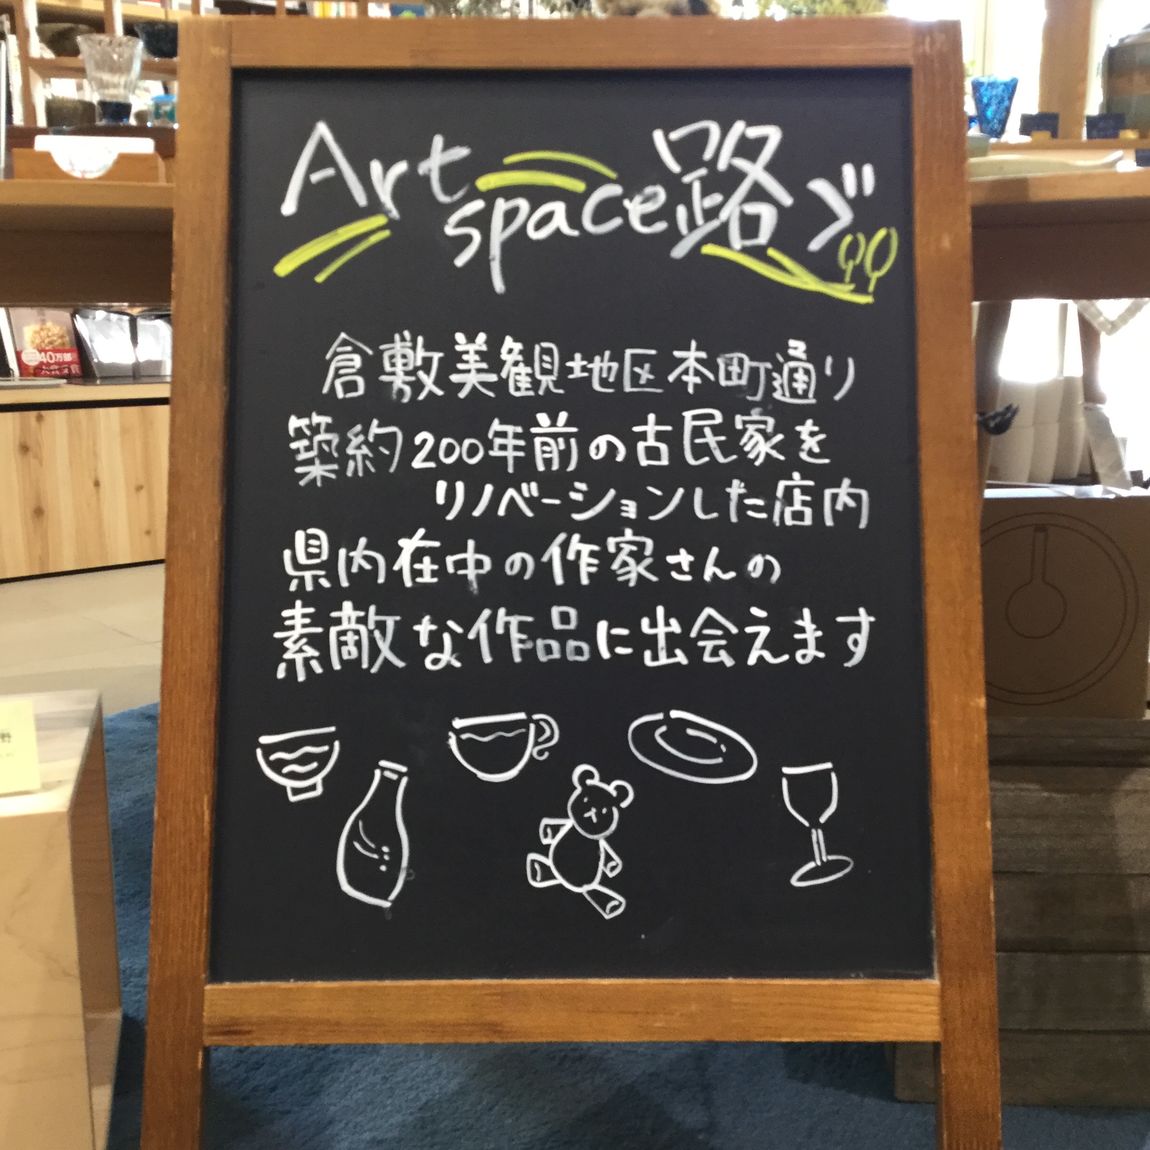 Art space 路ゞ
倉敷美観地区本町通り
築約200年前の古民家を
リノベーションした店内
県内在中の作家さんの
素敵な作品に出会えます
40万部